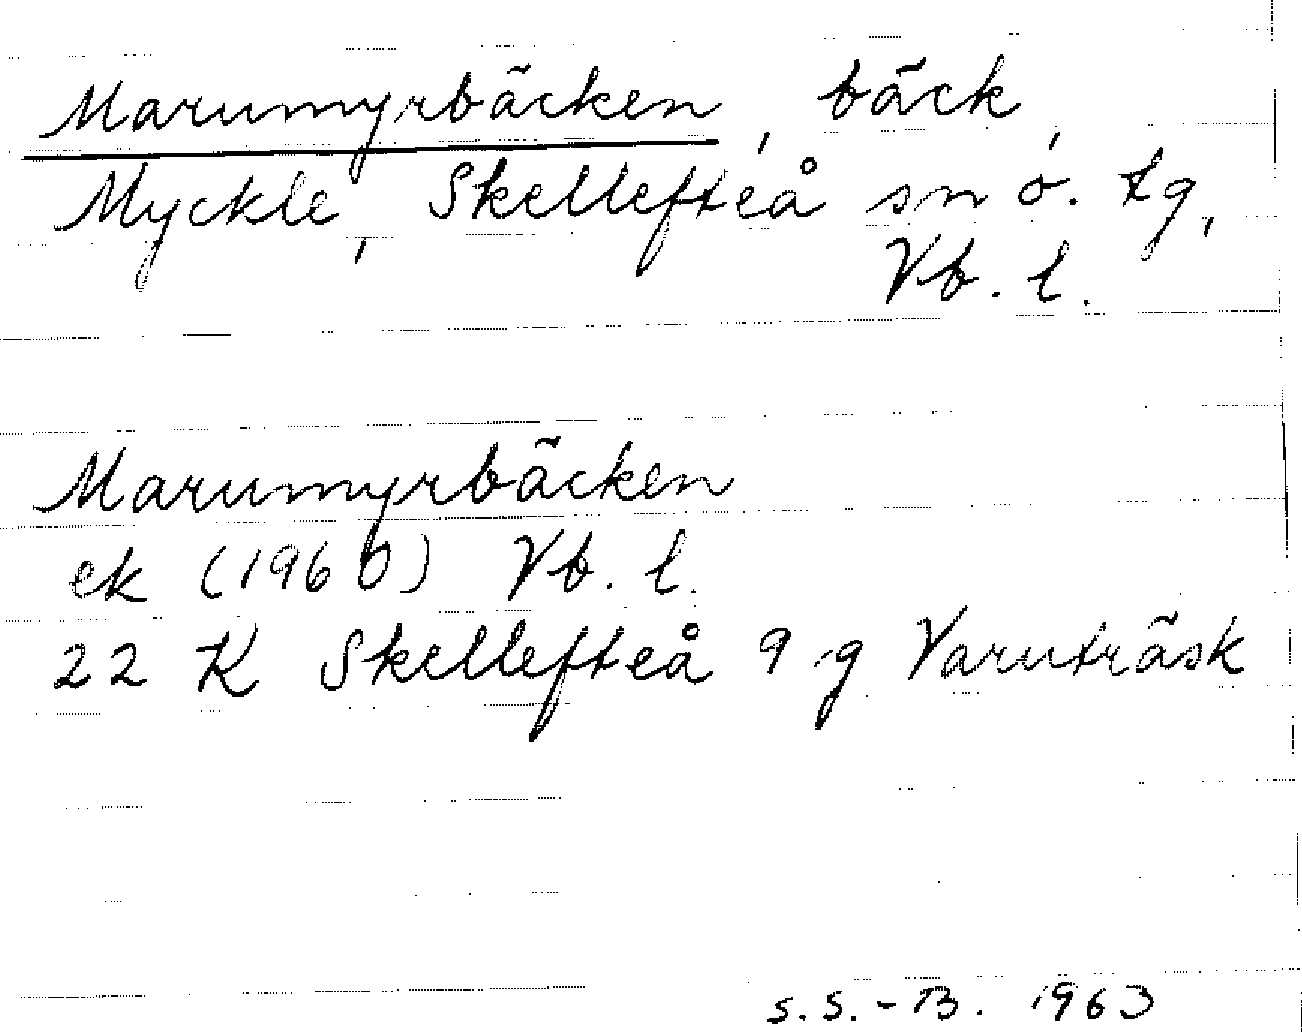 Marumyrbäcken, bäck
Myckle, Skellefteå sn ö. tg,
Vb. l.
Marumyrbäcken
ek (1960) Vb. l.
22 K Skellefteå 9 g Varuträsk
S.S.-B. 1963